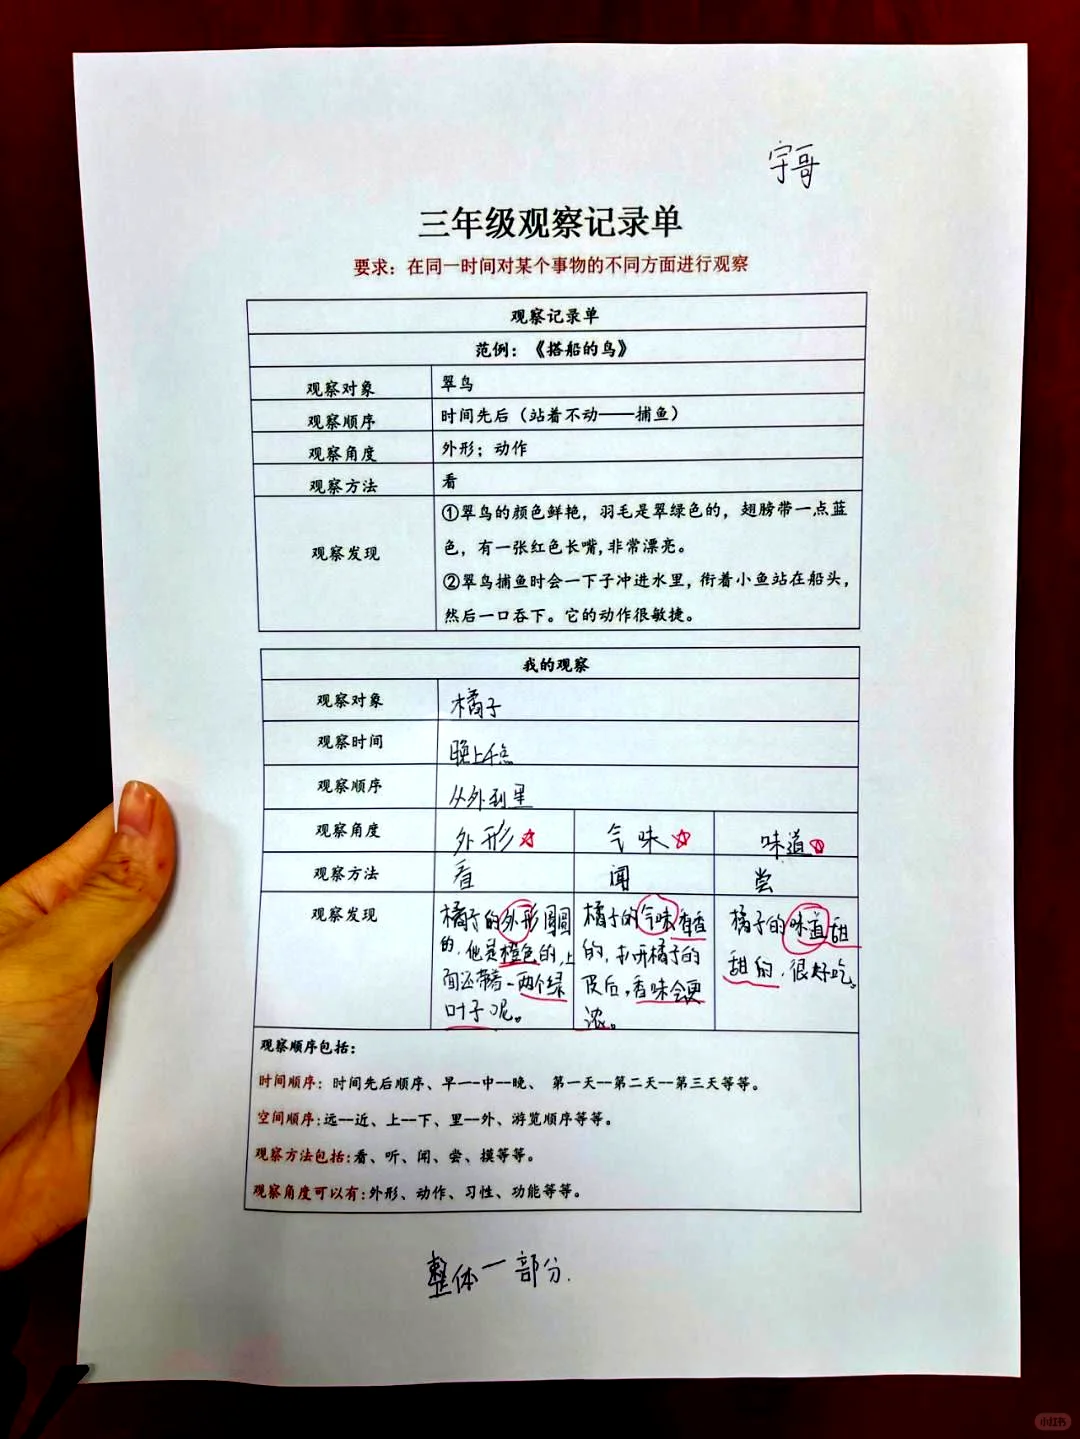 宇哥
三年级观察记录单
要求：在同一时间对某个事物的不同方面进行观察
观察记录单
范例：《搭船的鸟》
观察对象 翠鸟
观察顺序 时间先后（站着不动——捕鱼）
观察角度 外形；动作
观察方法 看
观察发现
①翠鸟的颜色鲜艳，羽毛是翠绿色的，翅膀带一点蓝
色，有一张红色长嘴,非常漂亮。
②翠鸟捕鱼时会一下子冲进水里，衔着小鱼站在船头，
然后一口吞下。它的动作很敏捷。
我的观察
观察对象 橘子
观察时间 晚上
观察顺序 从外到里
观察角度 外形 气味 味道
观察方法 看 闻 尝
观察发现
橘子的外形圆圆
的，他是橙色的，上
面还带着一两个绿
叶子呢。
橘子的气味香香
的，扒开橘子的
皮后，香味会更
浓。
橘子的味道甜
甜的，很好吃。
观察顺序包括：
时间顺序：时间先后顺序、早--中--晚、 第一天--第二天--第三天等等。
空间顺序:远--近、上--下、里--外、游览顺序等等。
观察方法包括:看、听、闻、尝、摸等等。
观察角度可以有:外形、动作、习性、功能等等。
整体一部分.
小红书